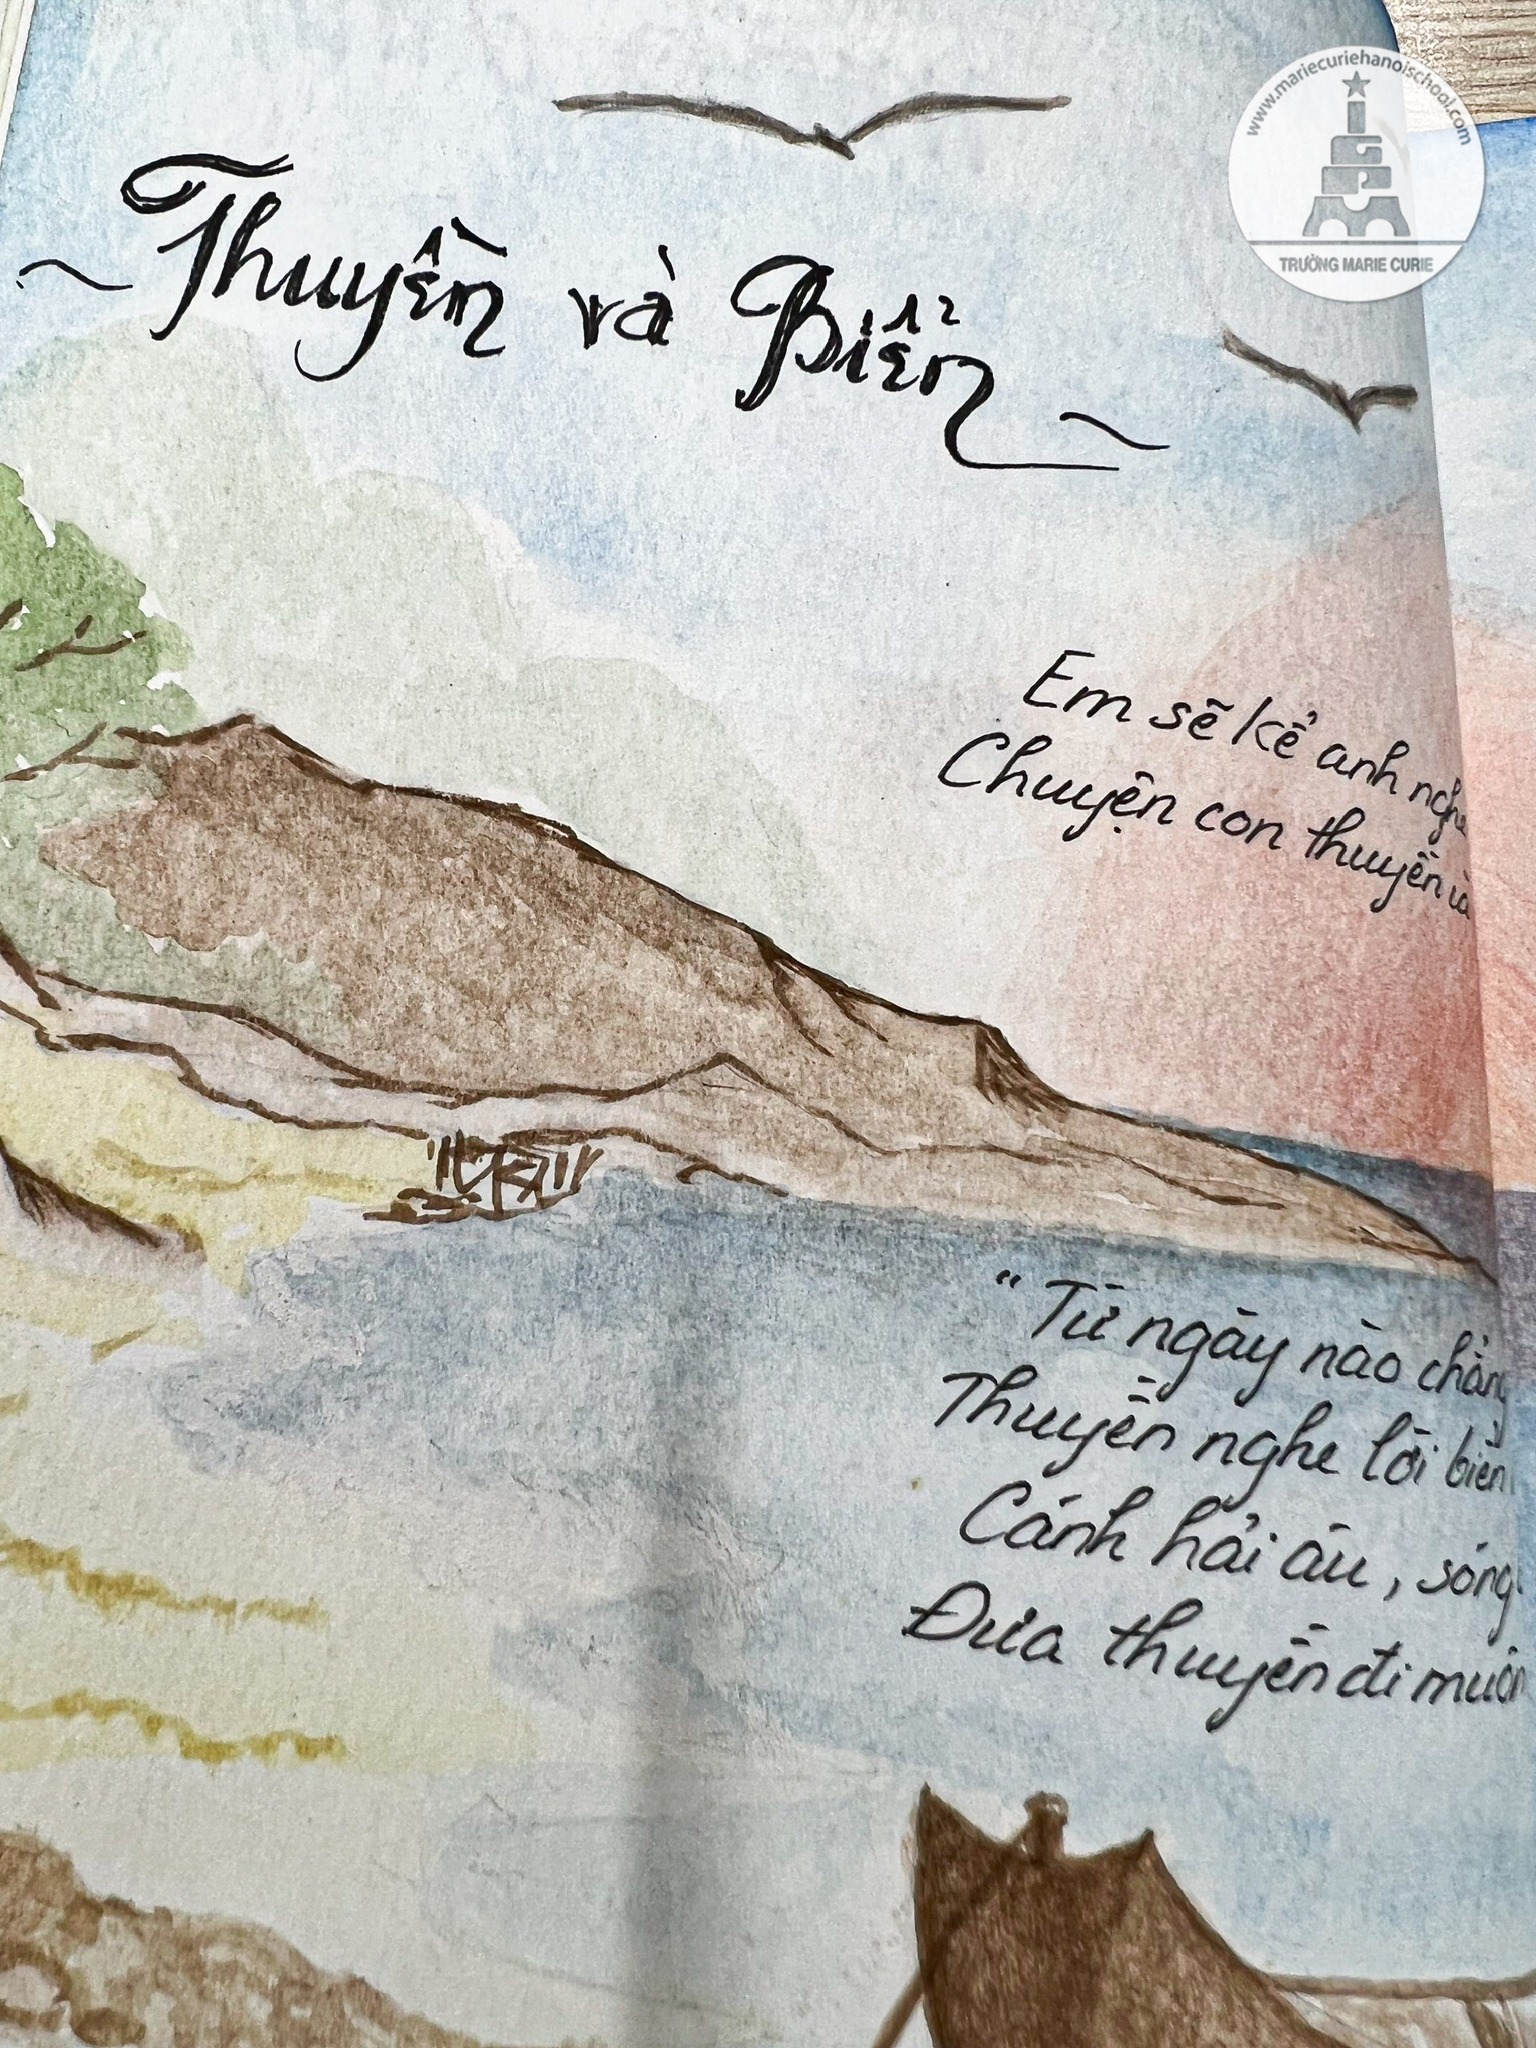 www.mariecuriehanoischool.com
TRƯỜNG MARIE CURIE
~ Thuyền và Biển ~
Em sẽ kể anh
Chuyện con thuyền
"Từ ngày nào
Thuyền nghe lời biển
Cánh hải âu, sóng
Đưa thuyền đi